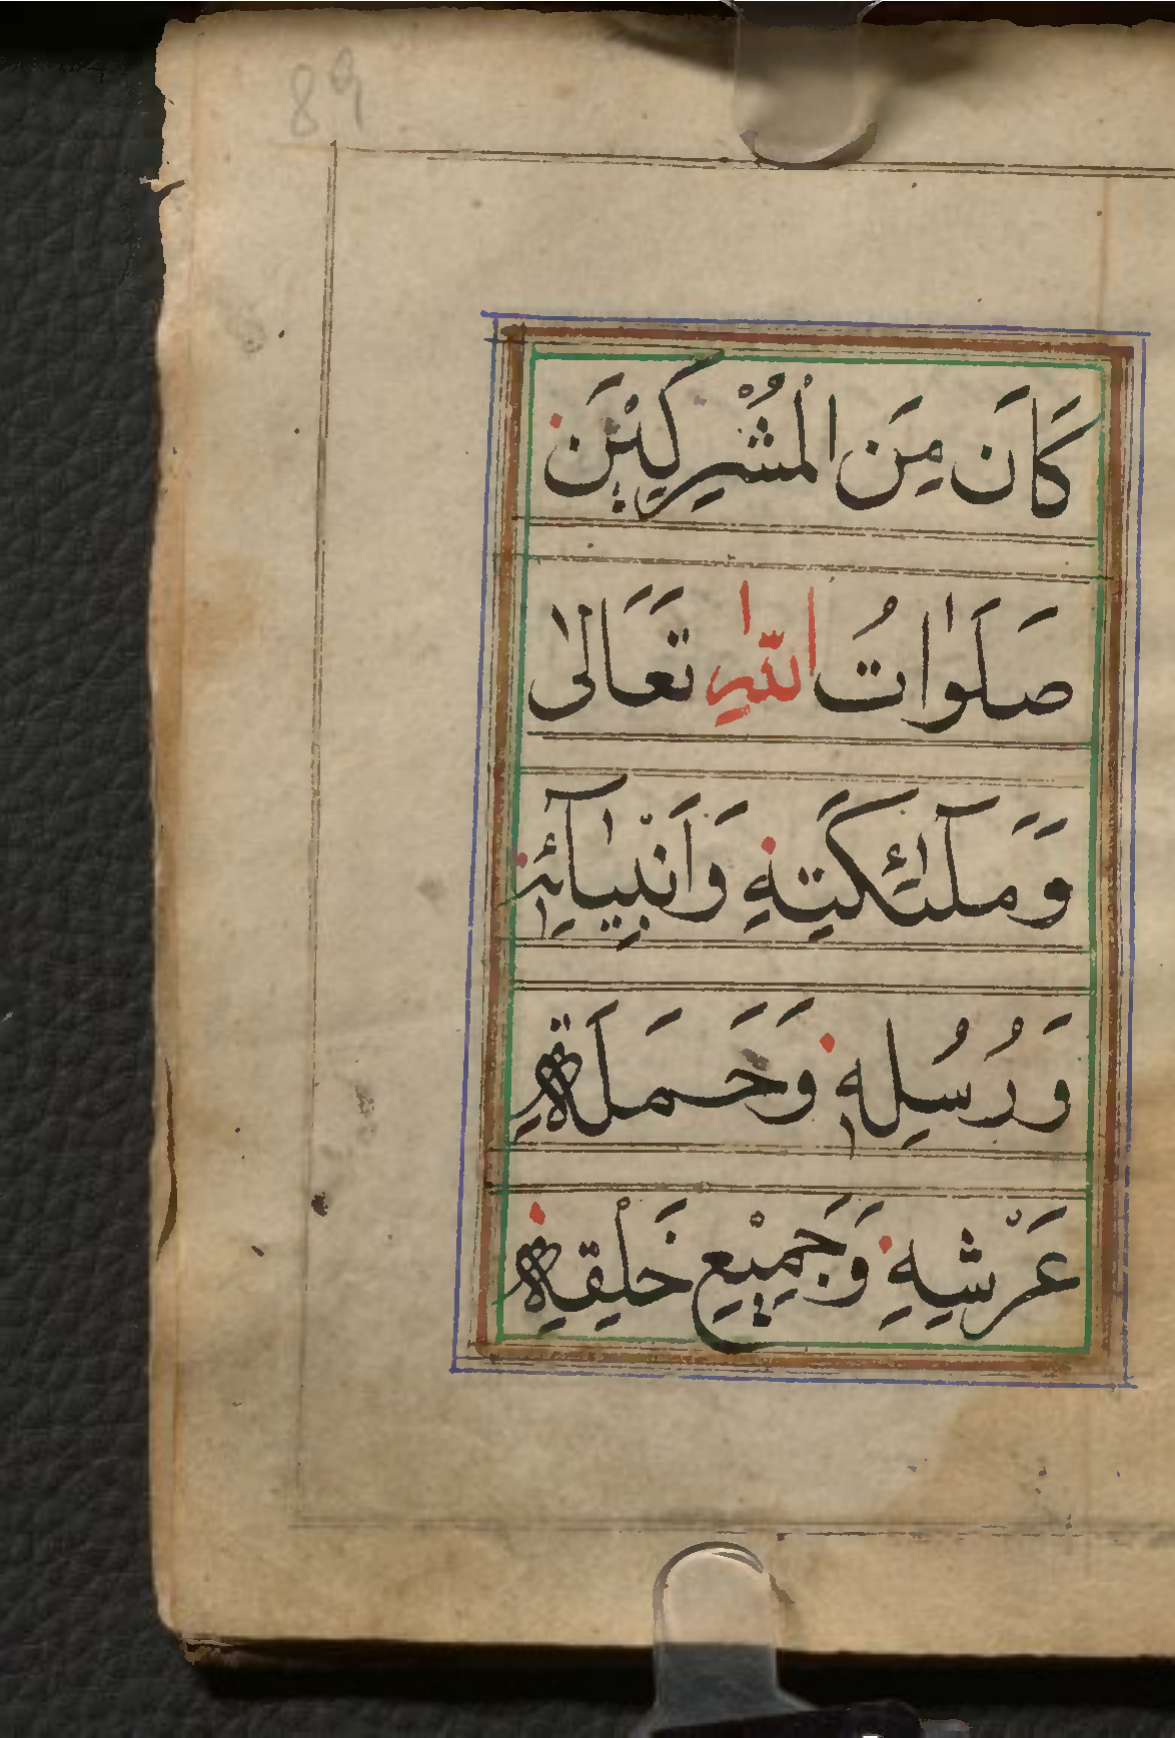 89
كَانَ مِنَ الْمُشْرِكِيْنَ
صَلَوٰاتُ اللّٰهِ تَعَالىٰ
وَمَلٓائِكَتِهٖ وَاَنْبِيٰآئِهٖ
وَرُسُلِهٖ وَحَمَلَةِ
عَرْشِهٖ وَجَمِيْعِ خَلْقِهٖ